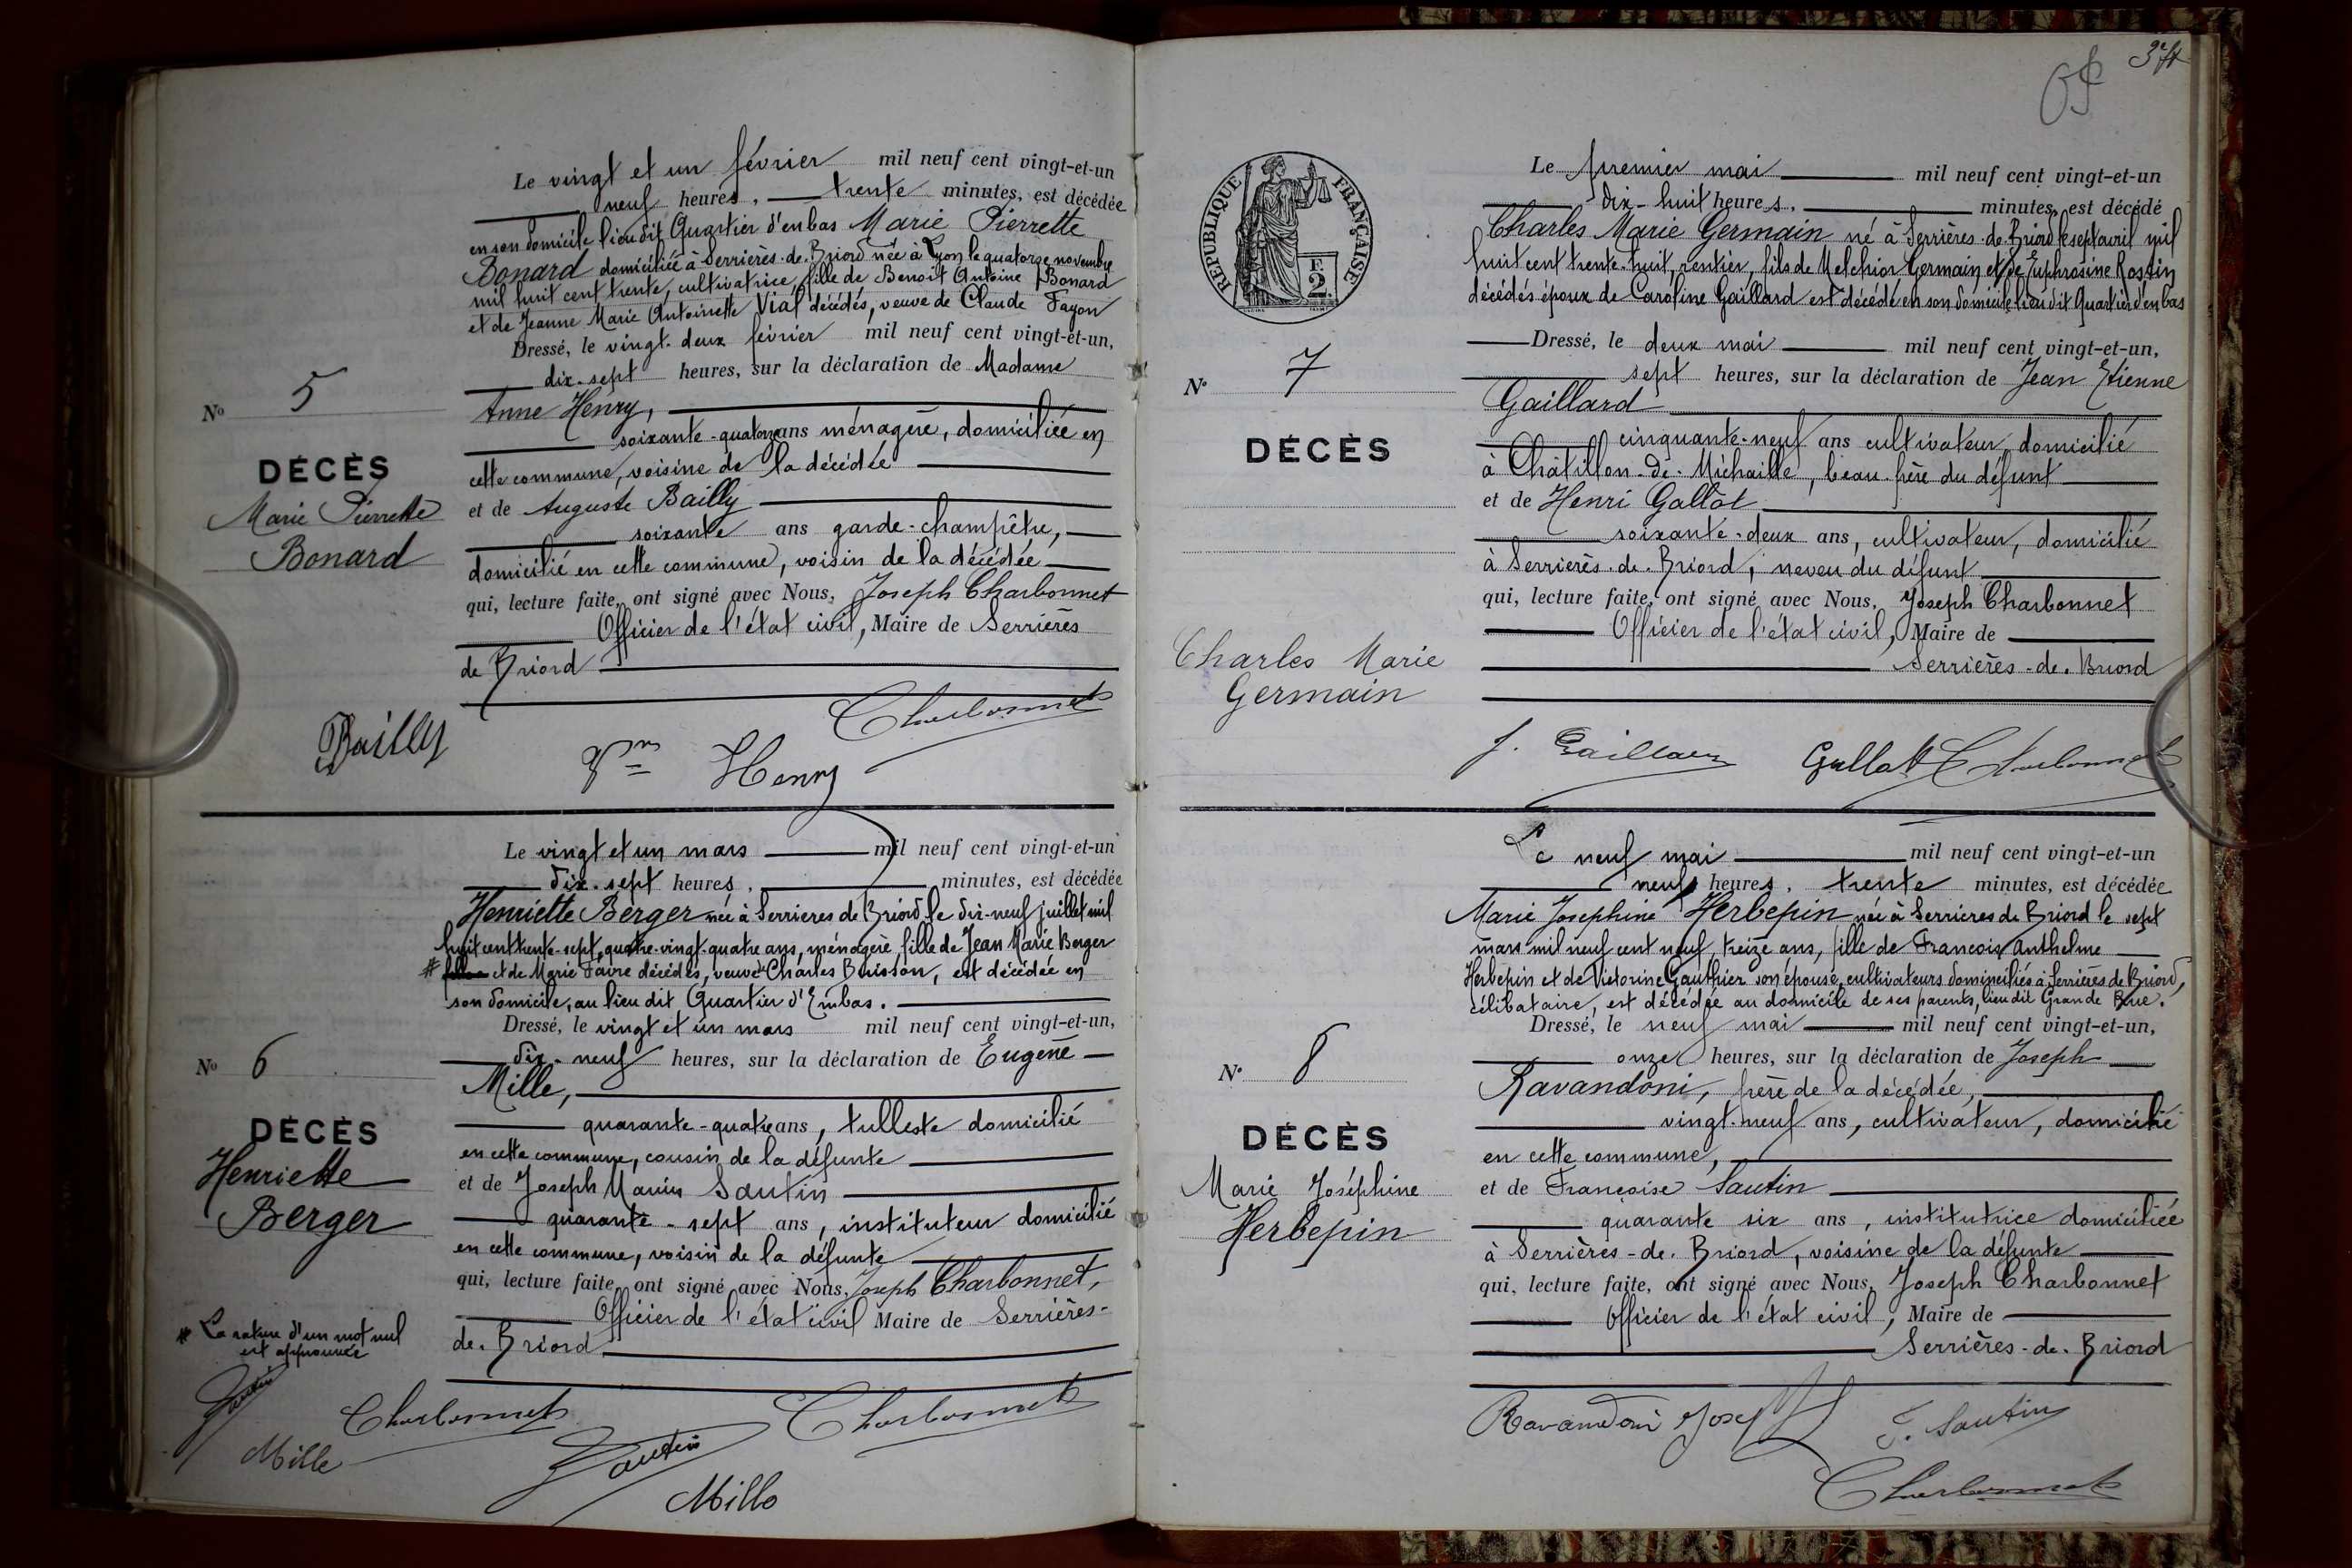 Le vingt et un février mil neuf cent vingt-et-un
neuf heures, trente minutes, est décédée
en son domicile lieu dit Quartier d'en bas Marie Pierrette
Bonard domiciliée à Serrières-de-Briord née à Lyon le quatorze novembre
mil huit cent trente, cultivatrice, fille de Benoît Antoine Bonard
et de Jeanne Marie Antoinette Vial décédés, veuve de Claude Fayon
Dressé, le vingt-deux février mil neuf cent vingt-et-un,
dix-sept heures, sur la déclaration de Madame
Anne Henry,
soixante-quatorze ans ménagère, domiciliée en
cette commune, voisine de la décédée
et de Auguste Bailly
soixante ans garde-champêtre,
domicilié en cette commune, voisin de la décédée
qui, lecture faite, ont signé avec Nous, Joseph Charbonnet
Officier de l'état civil, Maire de Serrières
de Briord
No 5
DÉCÈS
Marie Pierrette
Bonard
Charbonnet
Bailly
Henry
Le vingt et un mars mil neuf cent vingt-et-un
dix-sept heures, minutes, est décédée
Henriette Berger née à Serrieres de Briord le dix-neuf juillet mil
huit cent trente-sept, quatre-vingt-quatre ans, ménagère, fille de Jean Marie Berger
# et de Marie Faivre décédés, veuve de Charles Buisson, est décédée en
son domicile, au lieu dit Quartier d'Embas.
Dressé, le vingt et un mars mil neuf cent vingt-et-un,
dix-neuf heures, sur la déclaration de Eugène
Mille,
quarante-quatre ans, tulliste domicilié
en cette commune, cousin de la défunte
et de Joseph Marius Sautin
quarante-sept ans, instituteur domicilié
en cette commune, voisin de la défunte
qui, lecture faite, ont signé avec Nous, Joseph Charbonnet,
Officier de l'état civil Maire de Serrières-
de-Briord
No 6
DÉCÈS
Henriette
Berger
# La rature d'un mot nul
est approuvée
Sautin
Charbonnet
Mille
Sautin
Charbonnet
Mille
RÉPUBLIQUE FRANÇAISE
F.
2
Le premier mai mil neuf cent vingt-et-un
dix-huit heures, minutes, est décédé
Charles Marie Germain né à Serrières-de-Briord le sept avril mil
huit cent trente-huit, rentier, fils de Melchior Germain et de Euphrosine Rostin
décédés époux de Caroline Gaillard est décédé en son domicile lieu dit Quartier d'en bas
Dressé, le deux mai mil neuf cent vingt-et-un,
sept heures, sur la déclaration de Jean Etienne
Gaillard
cinquante-neuf ans cultivateur, domicilié
à Châtillon-de-Michaille, beau-frère du défunt
et de Henri Gallot
soixante-deux ans, cultivateur, domicilié
à Serrières-de-Briord, neveu du défunt
qui, lecture faite, ont signé avec Nous, Joseph Charbonnet
Officier de l'état civil, Maire de
Serrières-de-Briord
No 7
DÉCÈS
Charles Marie
Germain
J. Gaillard Gallot Charbonnet
Le neuf mai mil neuf cent vingt-et-un
neuf heures, trente minutes, est décédée
Marie Josephine Herbepin née à Serrieres de Briord le sept
mars mil neuf cent neuf, treize ans, fille de Francois Anthelme
Herbepin et de Victorine Gauthier son épouse, cultivateurs domiciliés à Serrières de Briord,
célibataire, est décédée au domicile de ses parents, lieu dit Grande Rue.
Dressé, le neuf mai mil neuf cent vingt-et-un,
onze heures, sur la déclaration de Joseph
Ravandoni, frère de la décédée,
vingt-neuf ans, cultivateur, domicilié
en cette commune,
et de Françoise Sautin
quarante six ans, institutrice domiciliée
à Serrières-de-Briord, voisine de la défunte
qui, lecture faite, ont signé avec Nous, Joseph Charbonnet
Officier de l'état civil, Maire de
Serrières-de-Briord
No 8
DÉCÈS
Marie Joséphine
Herbepin
Ravandoni Josef
F. Sautin
Charbonnet